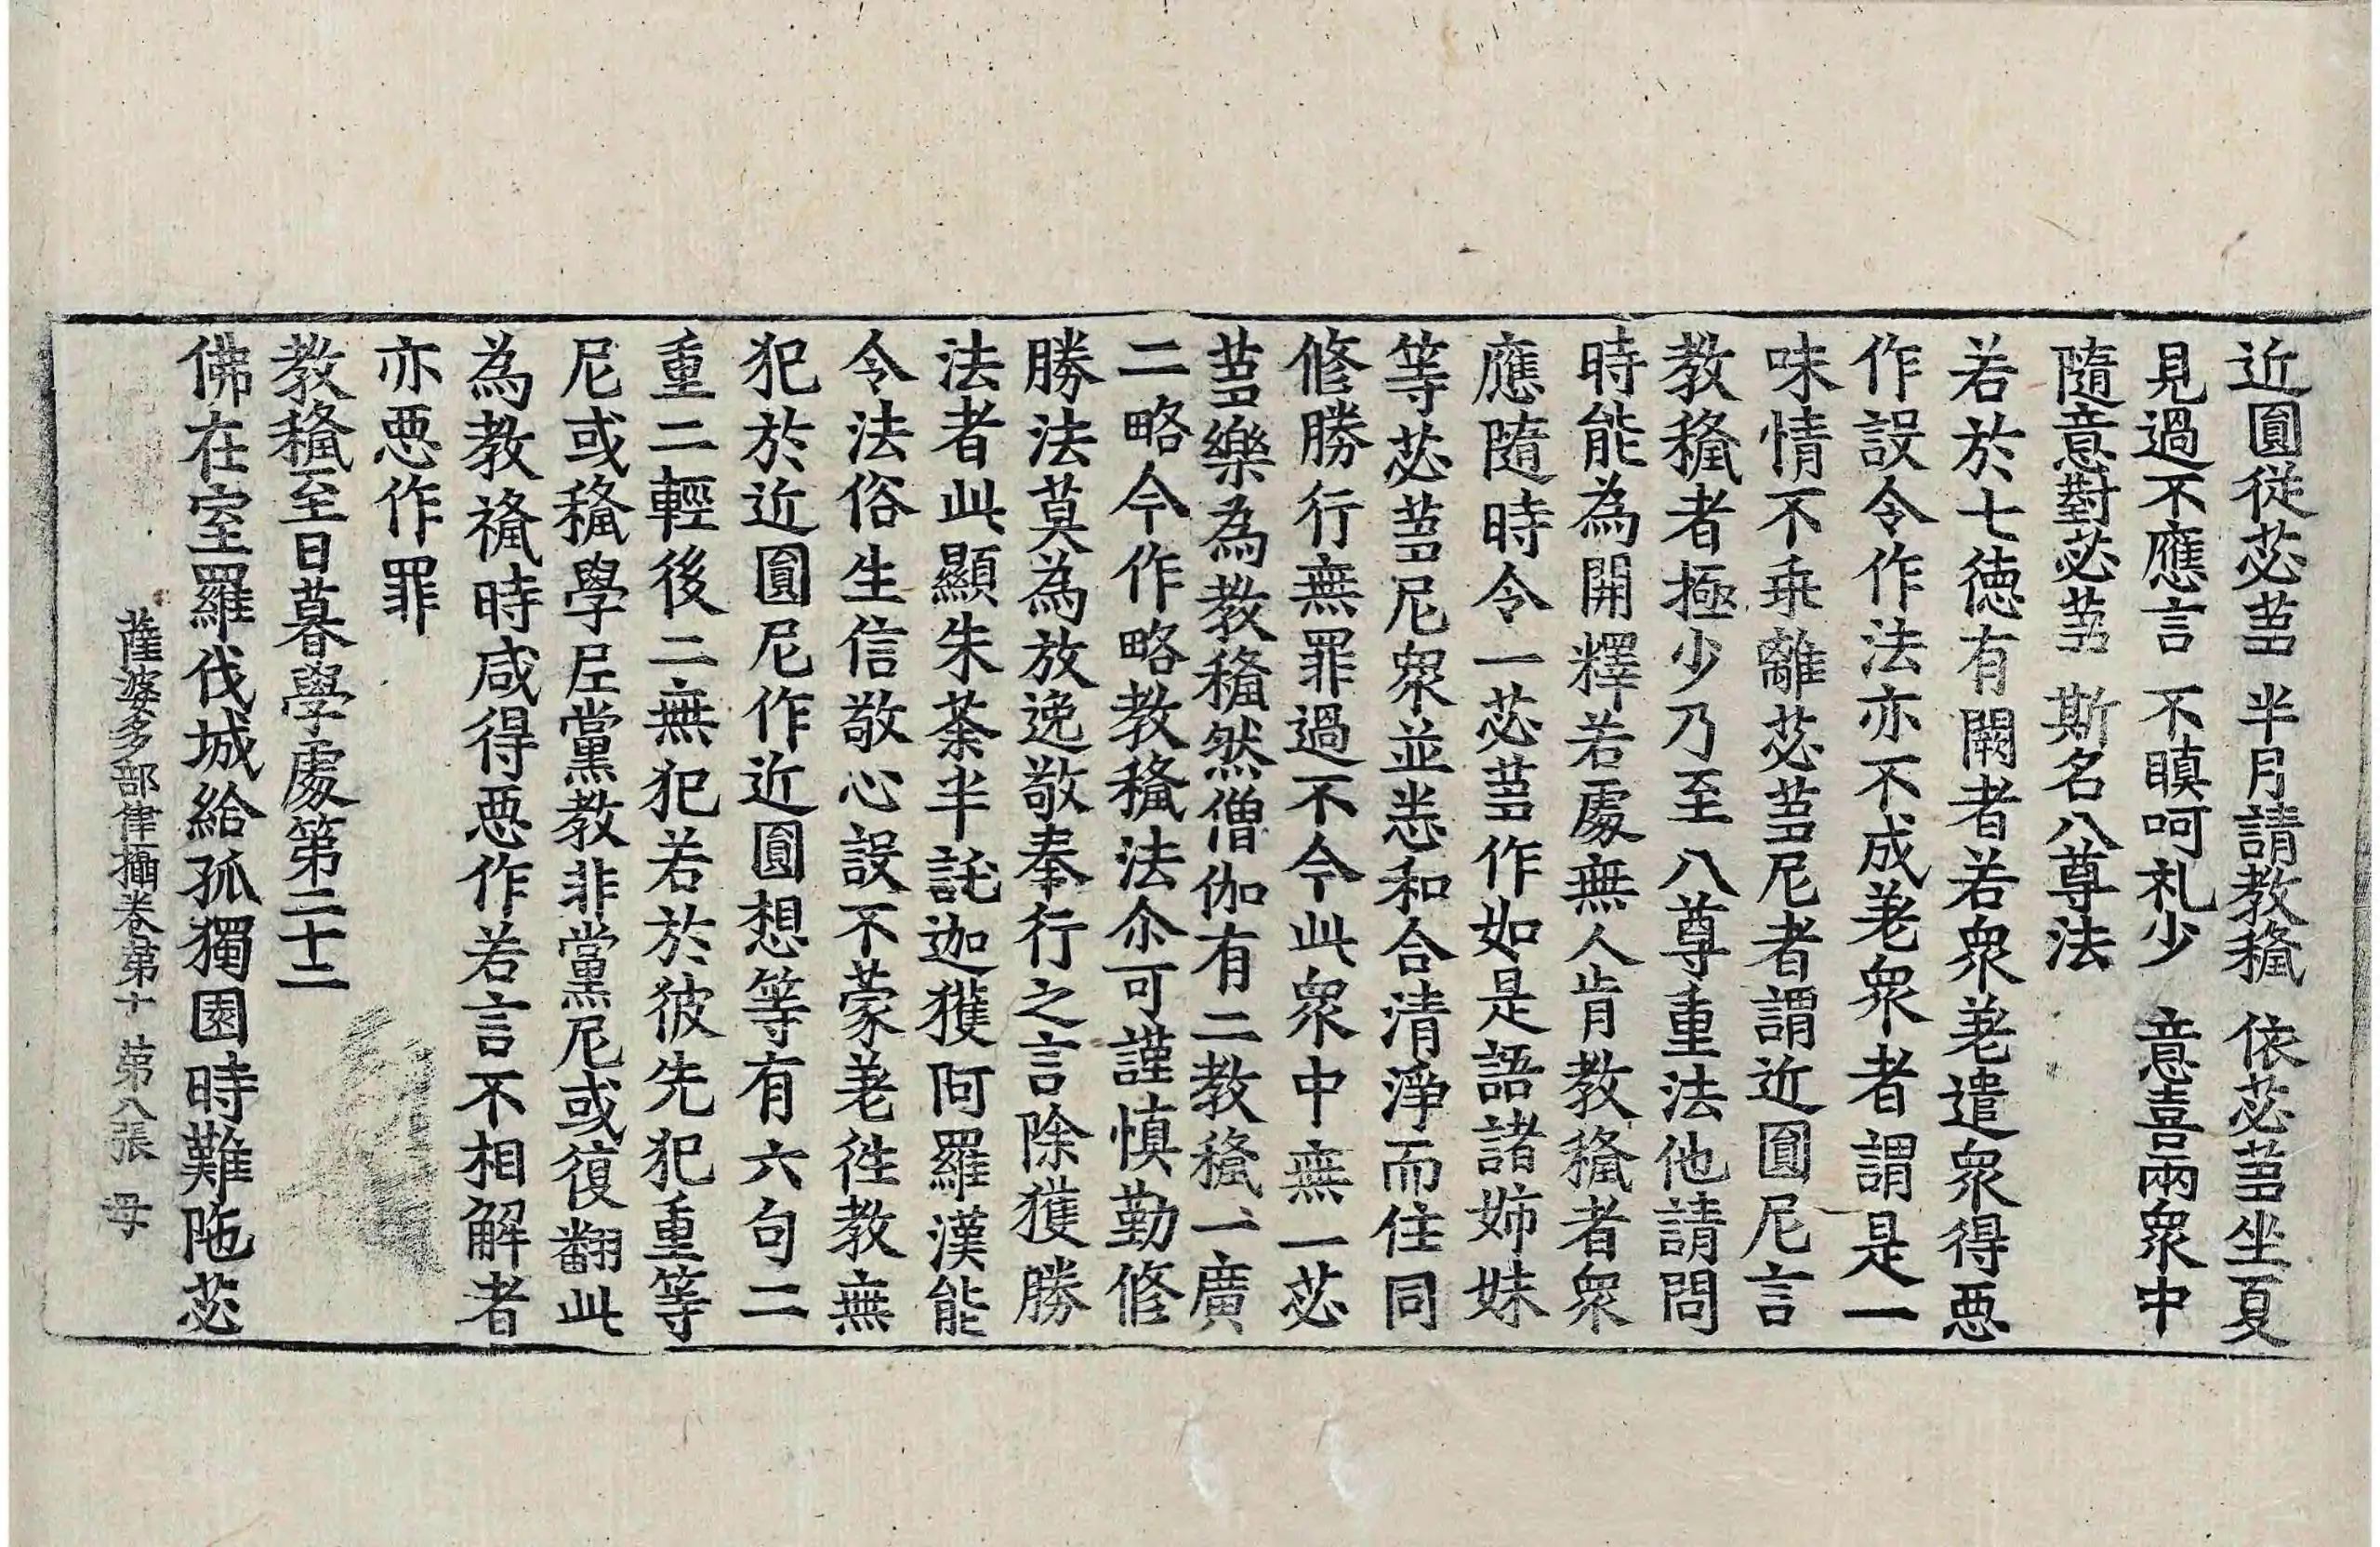 近圓從苾蒭　半月請教䅻　依苾蒭坐夏
見過不應言　不瞋呵礼少　意喜兩衆中
隨意對苾蒭　斯名八尊法
若於七德有闕者若衆差遣衆得惡
作設令作法亦不成差衆者謂是一
味情不乖離苾蒭尼者謂近圓尼言
教䅻者極少乃至八尊重法他請問
時能為開釋若處無人肯教䅻者衆
應隨時令一苾蒭作如是語諸姉妹
等苾蒭尼衆並悉和合清淨而住同
修勝行無罪過不今此衆中無一苾
蒭樂為教䅻然僧伽有二教䅻一廣
二略今作略教䅻法尒可謹慎勤修
勝法莫為放逸敬奉行之言除獲勝
法者此顯朱荼半託迦獲阿羅漢能
令法俗生信敬心設不蒙差徃教無
犯於近圓尼作近圓想等有六句二
重二輕後二無犯若於彼先犯重等
尼或䅻學尼黨教非黨尼或復翻此
為教䅻時咸得惡作若言不相解者
亦惡作罪
教䅻至日暮學處第二十二
佛在室羅伐城給孤獨園時難陁苾
薩婆多部律攝卷第十　第八張　母